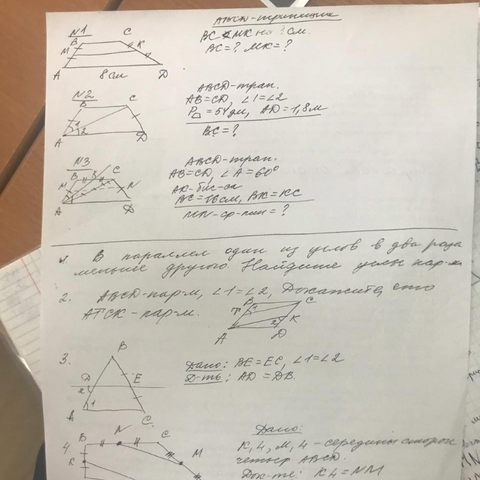 ABCD-трапеция
N1
BC < MK на см
BC=? MK=?
B C
M K
A 8 см D
N2
ABCD-трап.
AB=CD, ∠1=∠2
P=54 дм, AD=1,8 м
BC=?
B C
A 1 2 D
N3
ABCD-трап.
AB=CD, ∠A=60°
AK-бис-са
BC=16 см, BK=KC
MN-ср-лин=?
B K C
M N
A D
1. В параллел один из углов в два раза
меньше другого Найдите углы пар-м
2. ABCD-пар-м, ∠1=∠2, Докажите, что
ATCK-пар-м.
B C
T K
A D
3.
B
Дано: BE=EC, ∠1=∠2
Д-ть: AD=DB
D E
2
A 1 C
Дано:
4. B N C
K M
- середины сторон
четыр ABCD.
Док-ть: